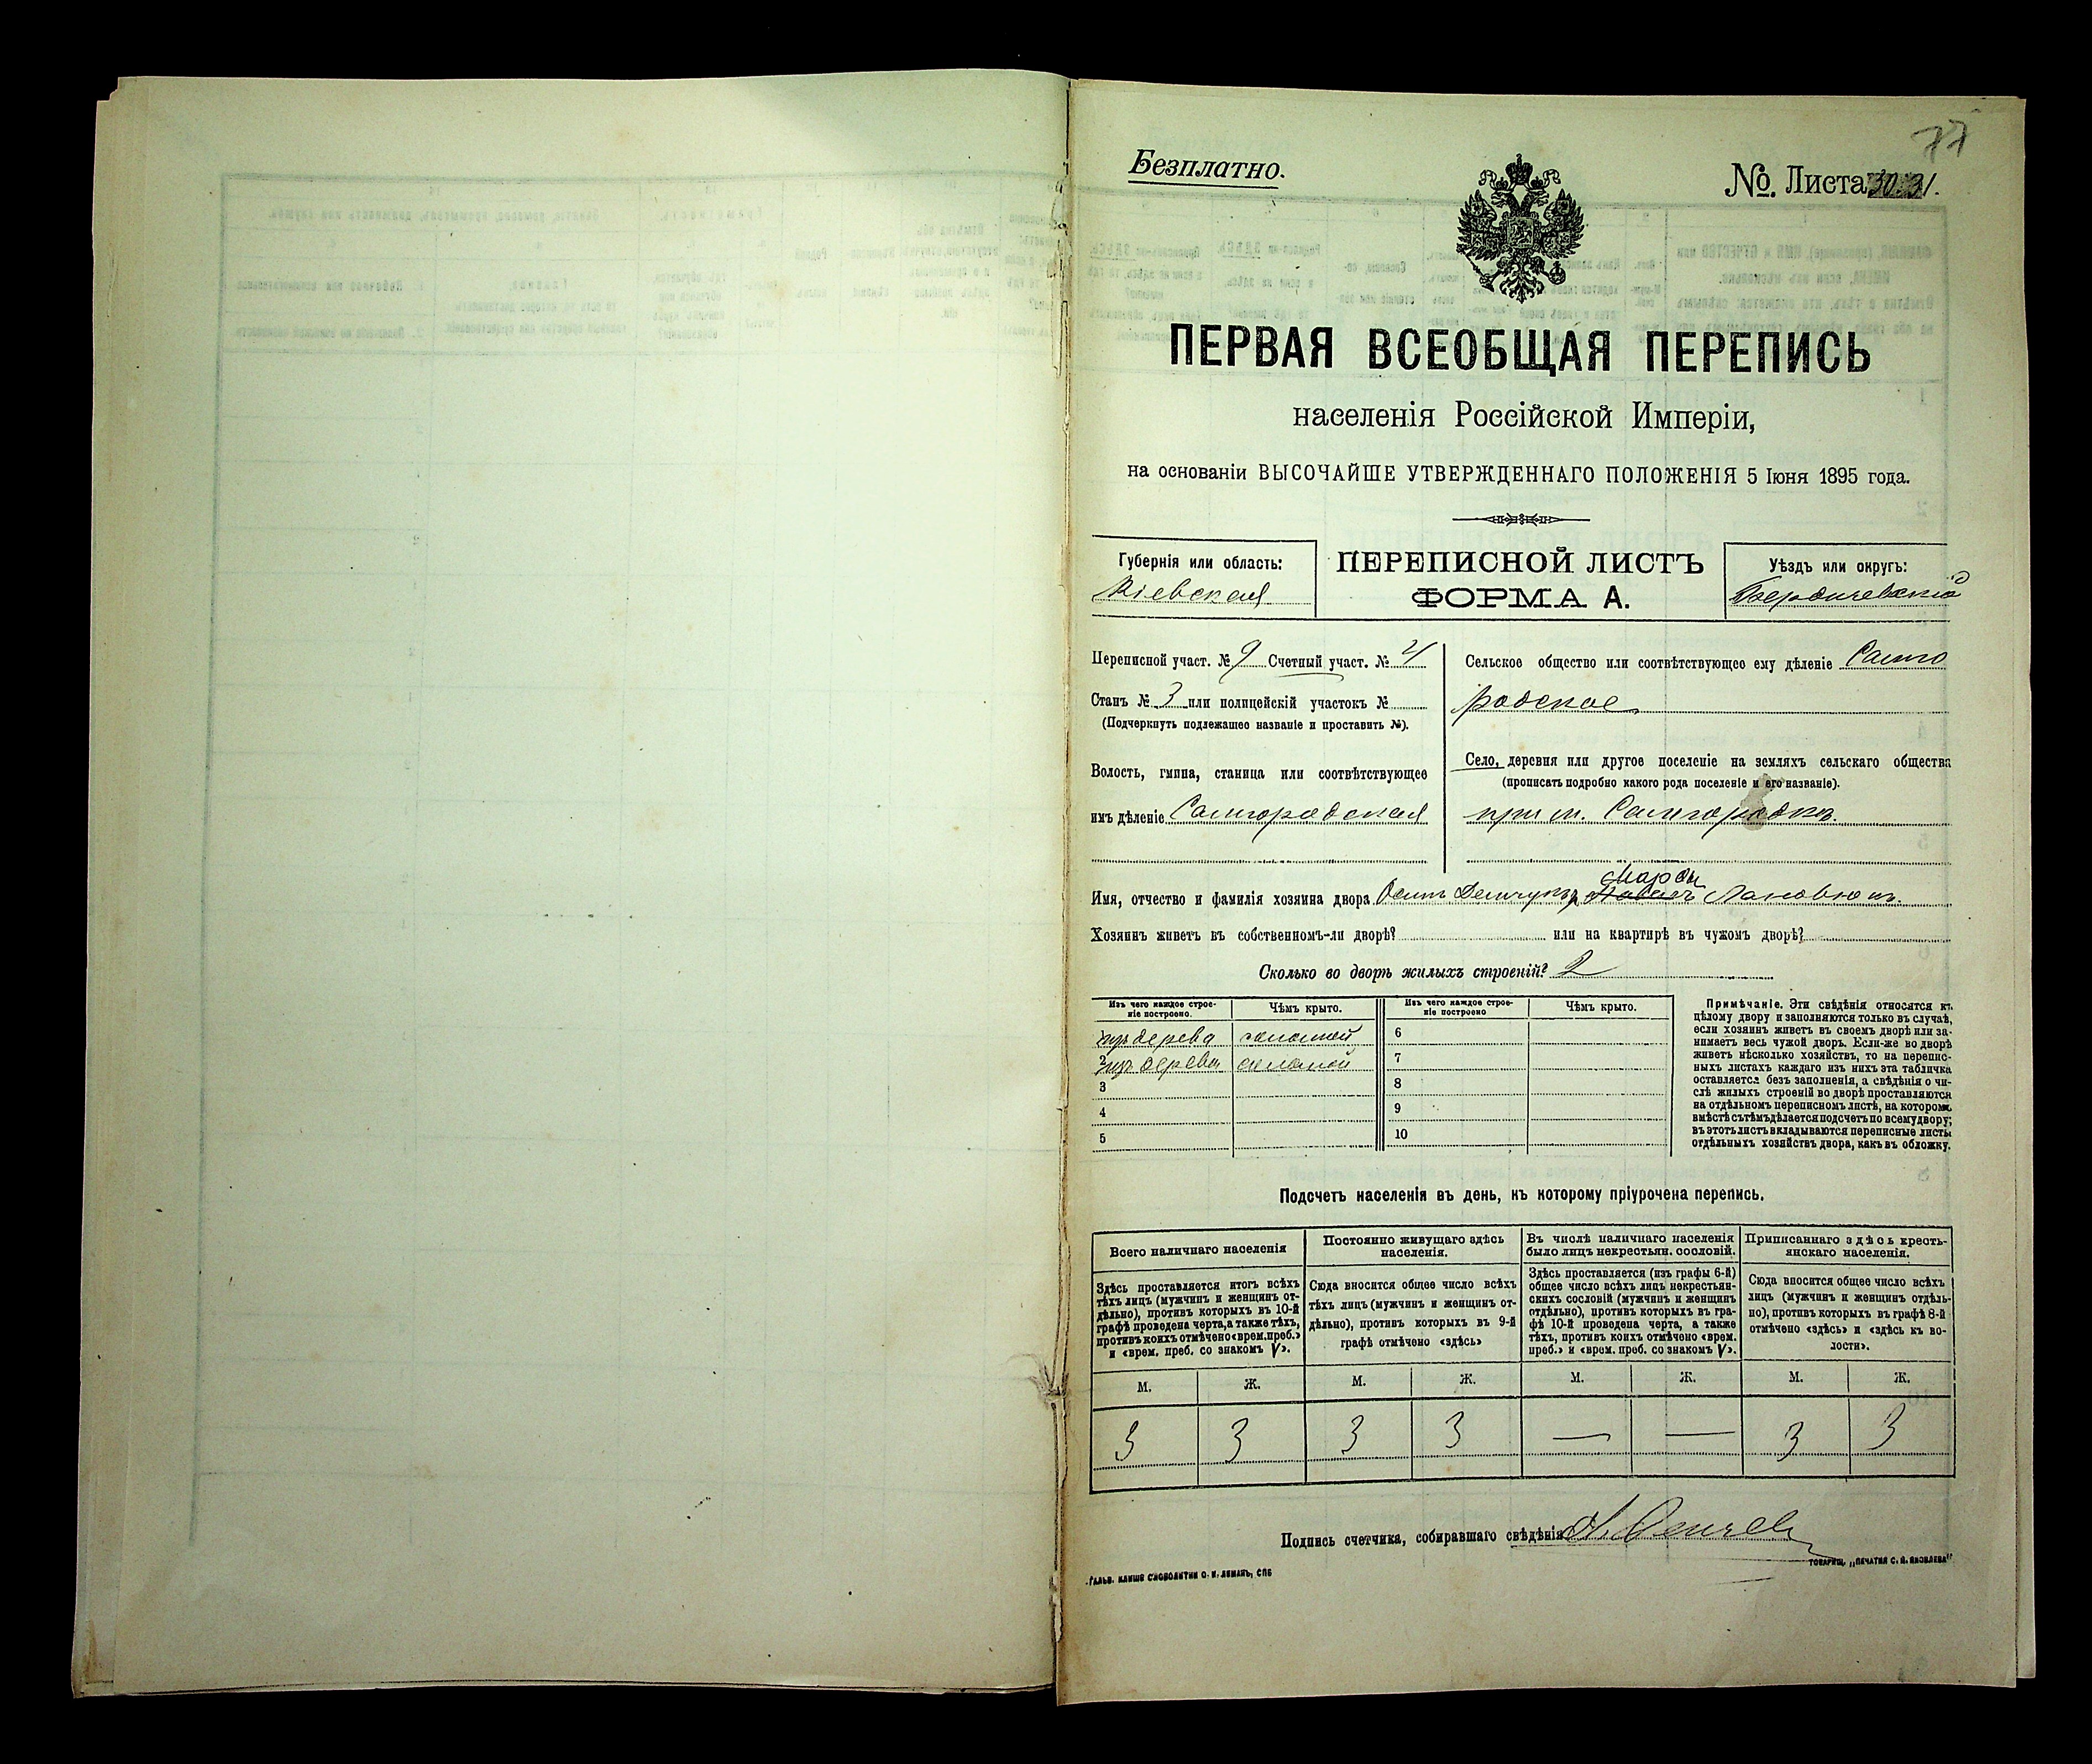 77
Безплатно.
№. Листа 30.31.
ПЕРВАЯ ВСЕОБЩАЯ ПЕРЕПИСЬ
населенія Россійской Имперіи,
на основаніи ВЫСОЧАЙШЕ УТВЕРЖДЕННАГО ПОЛОЖЕНІЯ 5 Іюня 1895 года.
Губернія или область:
Кіевская
ПЕРЕПИСНОЙ ЛИСТЪ
ФОРМА А.
Уѣздъ или округъ:
Бердичевскій
Переписной участ. № 9 Счетный участ. № 4
Станъ № 3 или полицейскій участокъ №
(Подчеркнуть подлежащее названіе и проставить №).
Волость, гмина, станица или соотвѣтствующее
имъ дѣленіе Самгородская
Сельское общество или соотвѣтствующее ему дѣленіе Самго
родское
Село, деревня или другое поселеніе на земляхъ сельскаго общества
(прописать подробно какого рода поселеніе и его названіе).
при м. Самгородкѣ.
Имя, отчество и фамилія хозяина двора Осипъ Демчукъ,
Хозяинъ живетъ въ собственномъ-ли дворѣ? или на квартирѣ въ чужомъ дворѣ?
Сколько во дворѣ жилыхъ строеній? 2
Изъ чего каждое строе-
ніе построено.
Чѣмъ крыто.
Изъ чего каждое строе-
ніе построено
Чѣмъ крыто.
изъ дерева соломой 6
2 изъ дерева соломой 7
3 8
4 9
5 10
Примѣчаніе. Эти свѣдѣнія относятся къ
цѣлому двору и заполняются только въ случаѣ,
если хозяинъ живетъ въ своемъ дворѣ или за-
нимаетъ весь чужой дворъ. Если-же во дворѣ
живетъ нѣсколько хозяйствъ, то на перепис-
ныхъ листахъ каждаго изъ нихъ эта табличка
оставляется безъ заполненія, а свѣдѣнія о чи-
слѣ жилыхъ строеній во дворѣ проставляются
на отдѣльномъ переписномъ листѣ, на которомъ
вмѣстѣ съ тѣмъ дѣлается подсчетъ по всему двору;
въ этотъ листъ вкладываются переписные листы
отдѣльныхъ хозяйствъ двора, какъ въ обложку.
Подсчетъ населенія въ день, къ которому пріурочена перепись.
Всего наличнаго населенія
Постоянно живущаго здѣсь
населенія.
Въ числѣ наличнаго населенія
было лицъ некрестьян. сословій.
Приписаннаго здѣсь кресть-
янскаго населенія.
Здѣсь проставляется итогъ всѣхъ
тѣхъ лицъ (мужчинъ и женщинъ от-
дѣльно), противъ которыхъ въ 10-й
графѣ проведена черта, а также тѣхъ,
противъ коихъ отмѣчено «врем. преб.»
и «врем. преб. со знакомъ V».
Сюда вносится общее число всѣхъ
тѣхъ лицъ (мужчинъ и женщинъ от-
дѣльно), противъ которыхъ въ 9-й
графѣ отмѣчено «здѣсь»
Здѣсь проставляется (изъ графы 6-й)
общее число всѣхъ лицъ некрестьян-
скихъ сословій (мужчинъ и женщинъ
отдѣльно), противъ которыхъ въ гра-
фѣ 10-й проведена черта, а также
тѣхъ, противъ коихъ отмѣчено «врем.
преб.» и «врем. преб. со знакомъ V».
Сюда вносится общее число всѣхъ
лицъ (мужчинъ и женщинъ отдѣль-
но), противъ которыхъ въ графѣ 8-й
отмѣчено «здѣсь» и «здѣсь къ во-
лости».
М. Ж. М. Ж. М. Ж. М. Ж.
3 3 3 3 — — 3 3
Подпись счетчика, собиравшаго свѣдѣнія
ГАЛЬВ. КЛИШЕ СЛОВОЛИТНИ О. И. ЛЕМАНЪ, СПБ
ТОВАРИЩ. „ПЕЧАТНЯ С. П. ЯКОВЛЕВА"